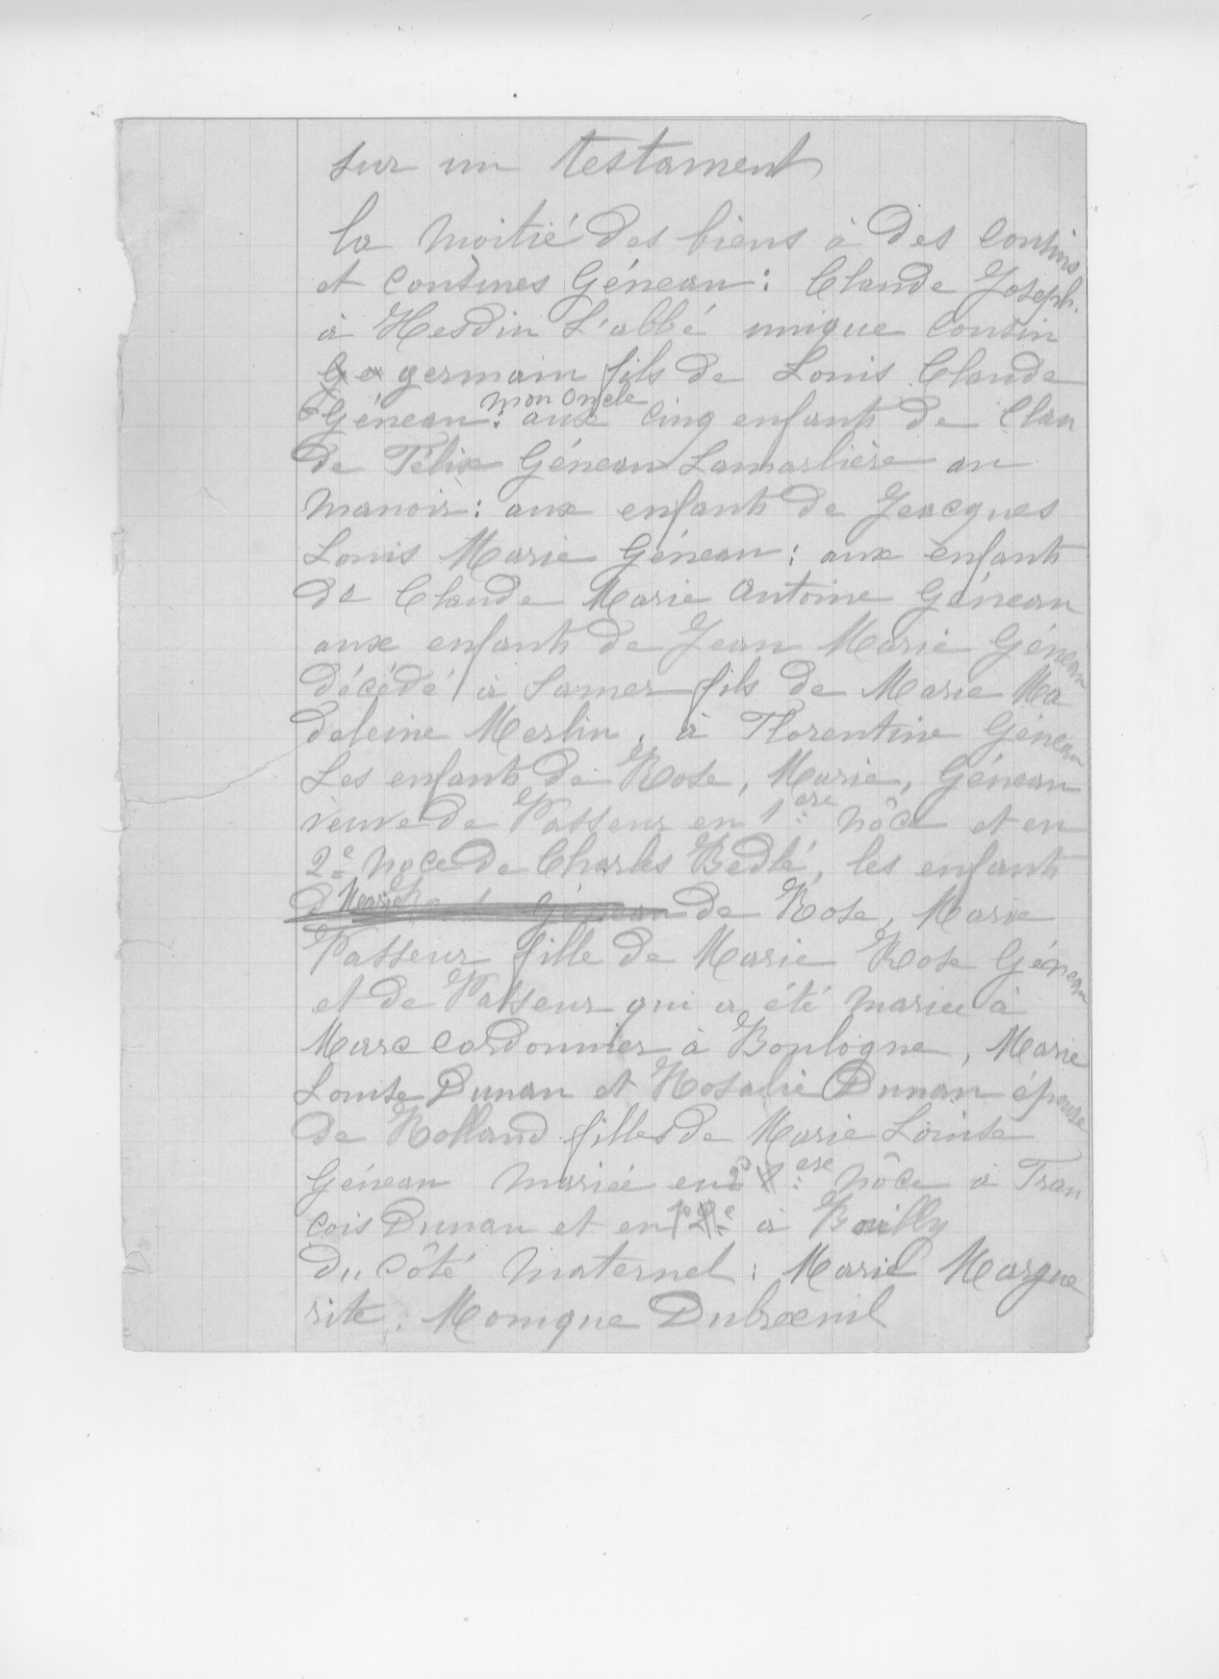 sur un testament
la moitié des biens à des cousins
et cousines Géneau : Claude Joseph.
à Hesdin L'abbé unique cousin
germain fils de Louis Claude
Géneau : mon oncle aux cinq enfants de Clau
de Félix Géneau Lamarlière au
manoir : aux enfants de Jacques
Louis Marie Géneau : aux enfants
de Claude Marie Antoine Géneau
aux enfants de Jean Marie Géneau
décédé à Samer fils de Marie Ma
deleine Merlin, à Florentine Géneau
Les enfants de Rose, Marie, Géneau
veuve de Vasseur en 1ere nôce et en
2e noce de Charles Bedlé, les enfants
de Rose, Marie
Vasseur fille de Marie Rose Géneau
et de Vasseur qui a été mariée à
Marc cordonnier à Boulogne, Marie
Louise Dunan et Rosalie Dunan épouse
de Rolland filles de Marie Louise
Géneau mariée en 2e nôce à Fran
cois Dunan et en 1e à Bailly
du côté maternel : Marie Margue
rite. Monique Dubroeuil